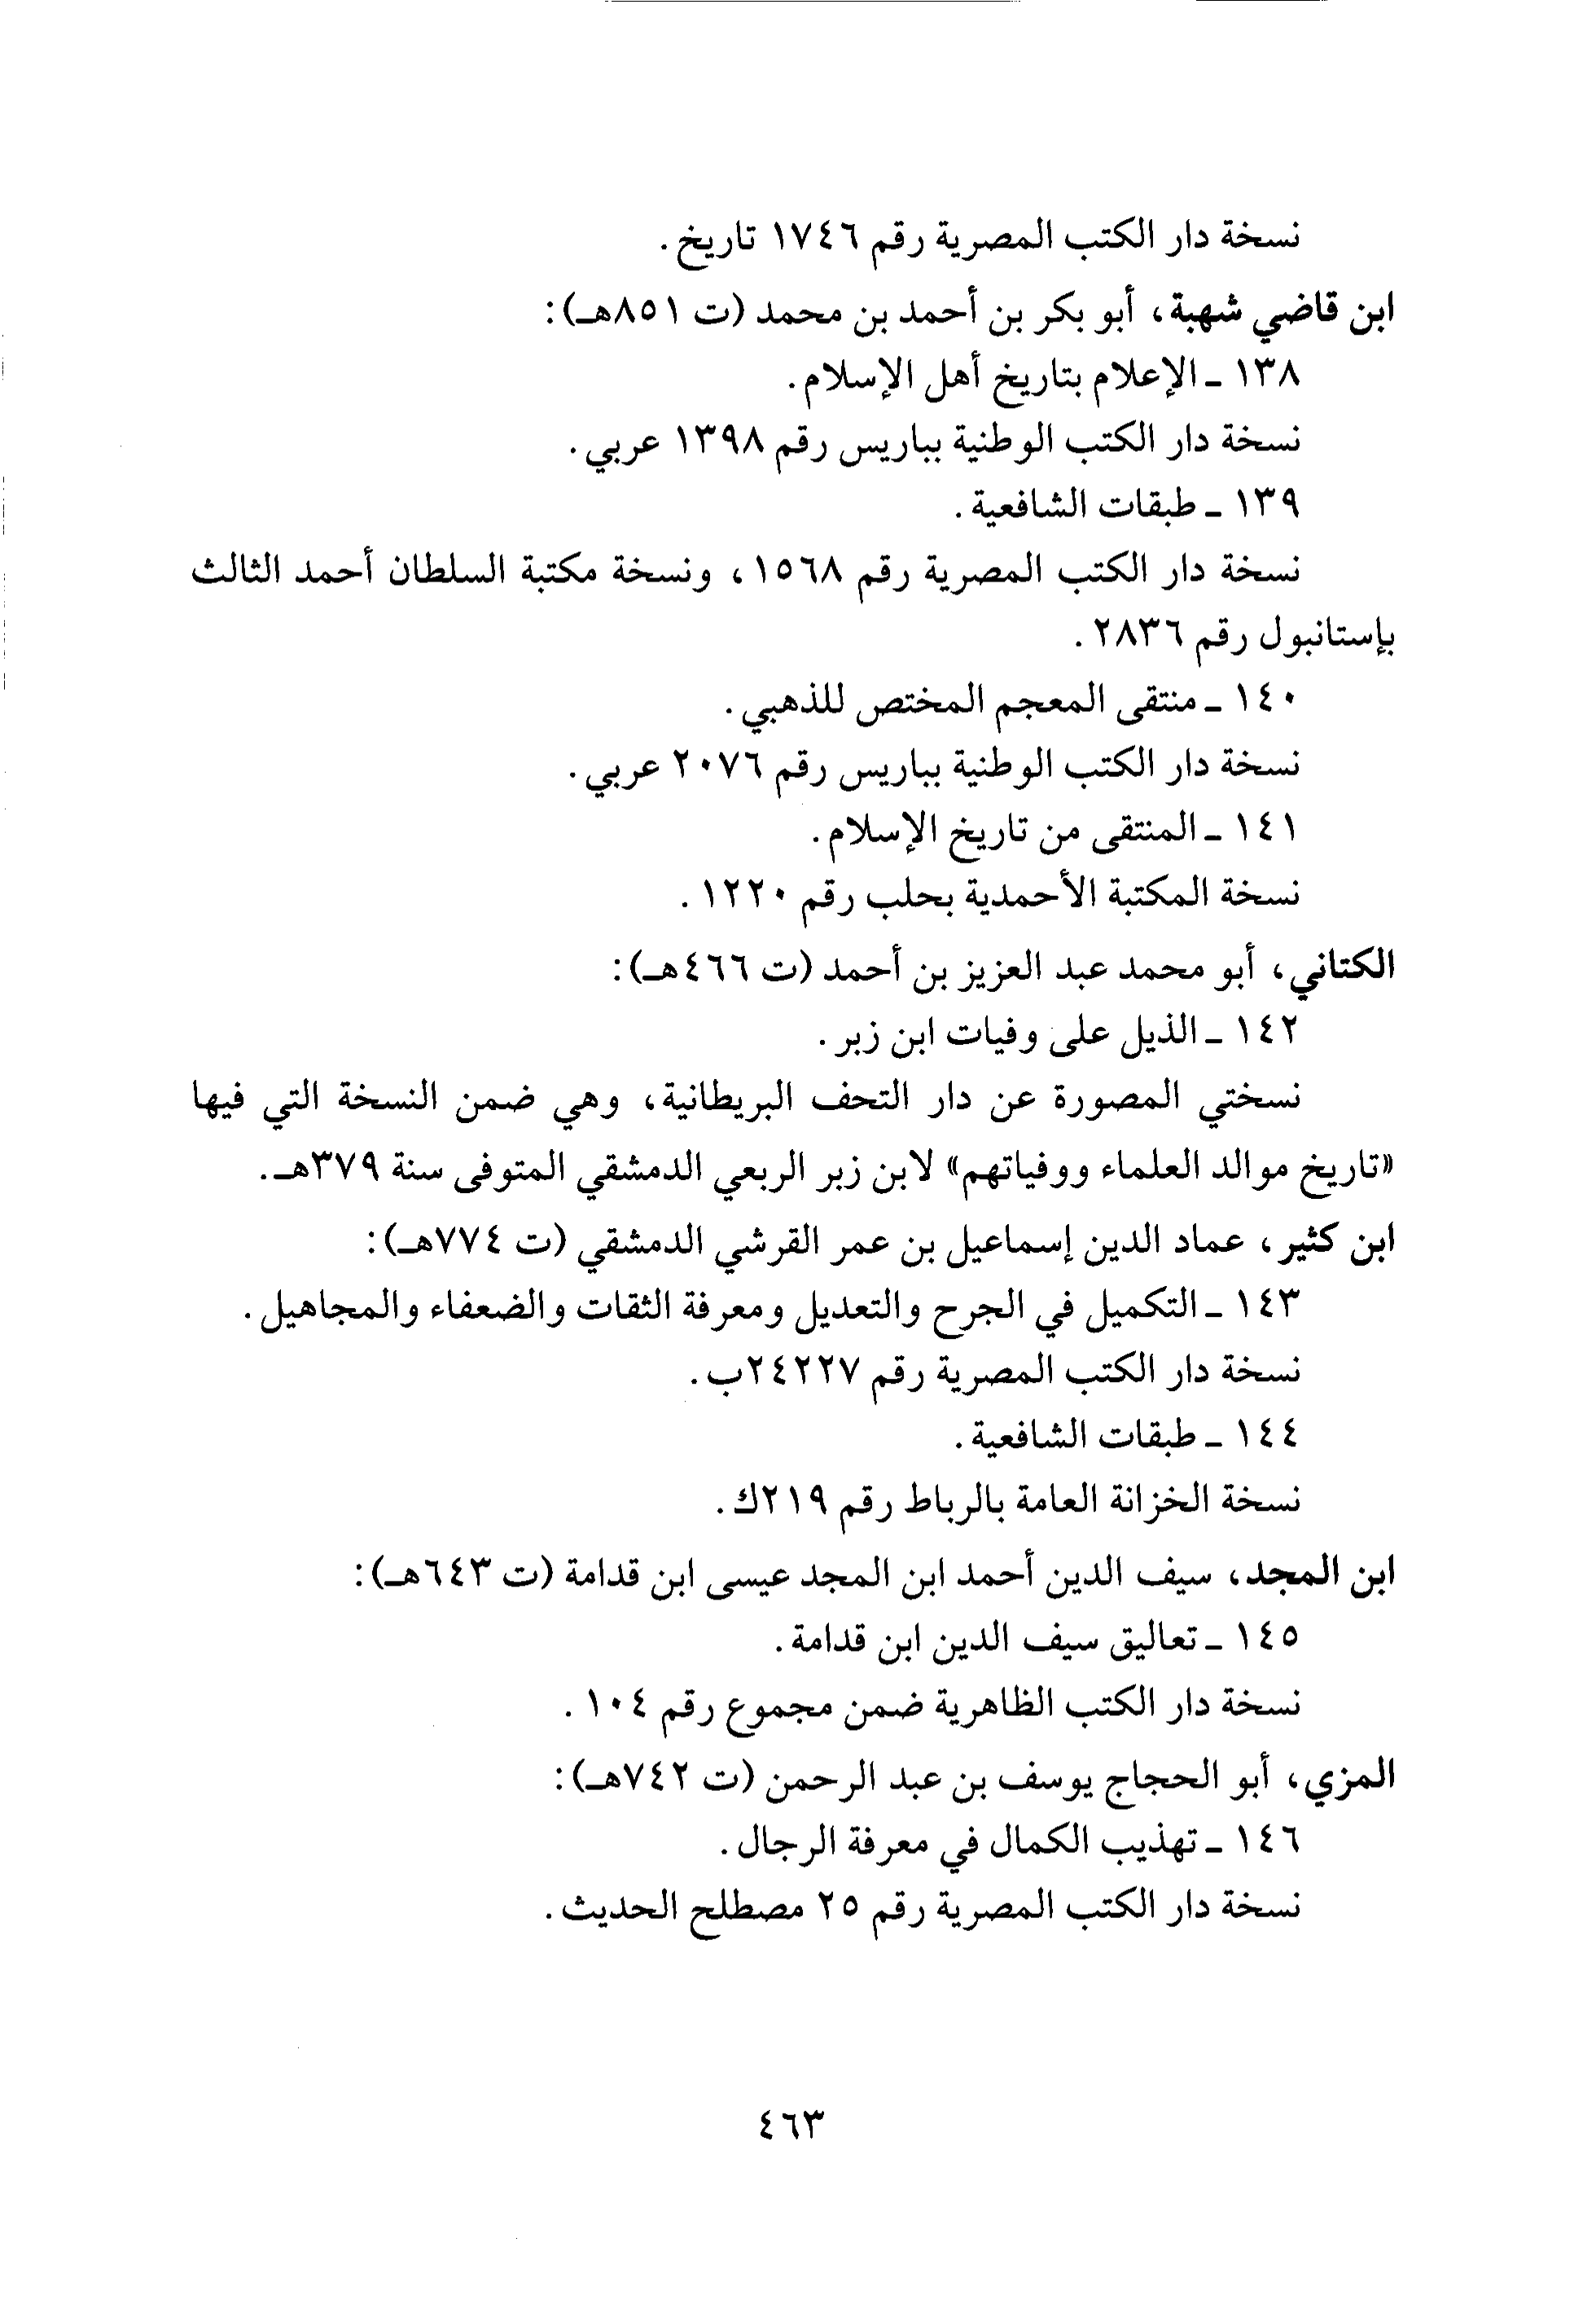 نسخة دار الكتب المصرية رقم ١٧٤٦ تاريخ.
ابن قاضي شهبة، أبو بكر بن أحمد بن محمد (ت ٨٥١هـ):
١٣٨ ـ الإعلام بتاريخ أهل الإسلام.
نسخة دار الكتب الوطنية بباريس رقم ١٣٩٨ عربي.
١٣٩ ـ طبقات الشافعية.
نسخة دار الكتب المصرية رقم ١٥٦٨، ونسخة مكتبة السلطان أحمد الثالث
بإستانبول رقم ٢٨٣٦.
١٤٠ ـ منتقى المعجم المختص للذهبي.
نسخة دار الكتب الوطنية بباريس رقم ٢٠٧٦ عربي.
١٤١ ـ المنتقى من تاريخ الإسلام.
نسخة المكتبة الأحمدية بحلب رقم ١٢٢٠.
الكتاني، أبو محمد عبد العزيز بن أحمد (ت ٤٦٦هـ):
١٤٢ ـ الذيل على وفيات ابن زبر.
نسختي المصورة عن دار التحف البريطانية، وهي ضمن النسخة التي فيها
«تاريخ موالد العلماء ووفياتهم» لابن زبر الربعي الدمشقي المتوفى سنة ٣٧٩هـ.
ابن كثير، عماد الدين إسماعيل بن عمر القرشي الدمشقي (ت ٧٧٤هـ):
١٤٣ ـ التكميل في الجرح والتعديل ومعرفة الثقات والضعفاء والمجاهيل.
نسخة دار الكتب المصرية رقم ٢٤٢٢٧ب.
١٤٤ ـ طبقات الشافعية.
نسخة الخزانة العامة بالرباط رقم ٢١٩ك.
ابن المجد، سيف الدين أحمد ابن المجد عيسى ابن قدامة (ت ٦٤٣هـ):
١٤٥ ـ تعاليق سيف الدين ابن قدامة.
نسخة دار الكتب الظاهرية ضمن مجموع رقم ١٠٤.
المزي، أبو الحجاج يوسف بن عبد الرحمن (ت ٧٤٢هـ):
١٤٦ ـ تهذيب الكمال في معرفة الرجال.
نسخة دار الكتب المصرية رقم ٢٥ مصطلح الحديث.
٤٦٣